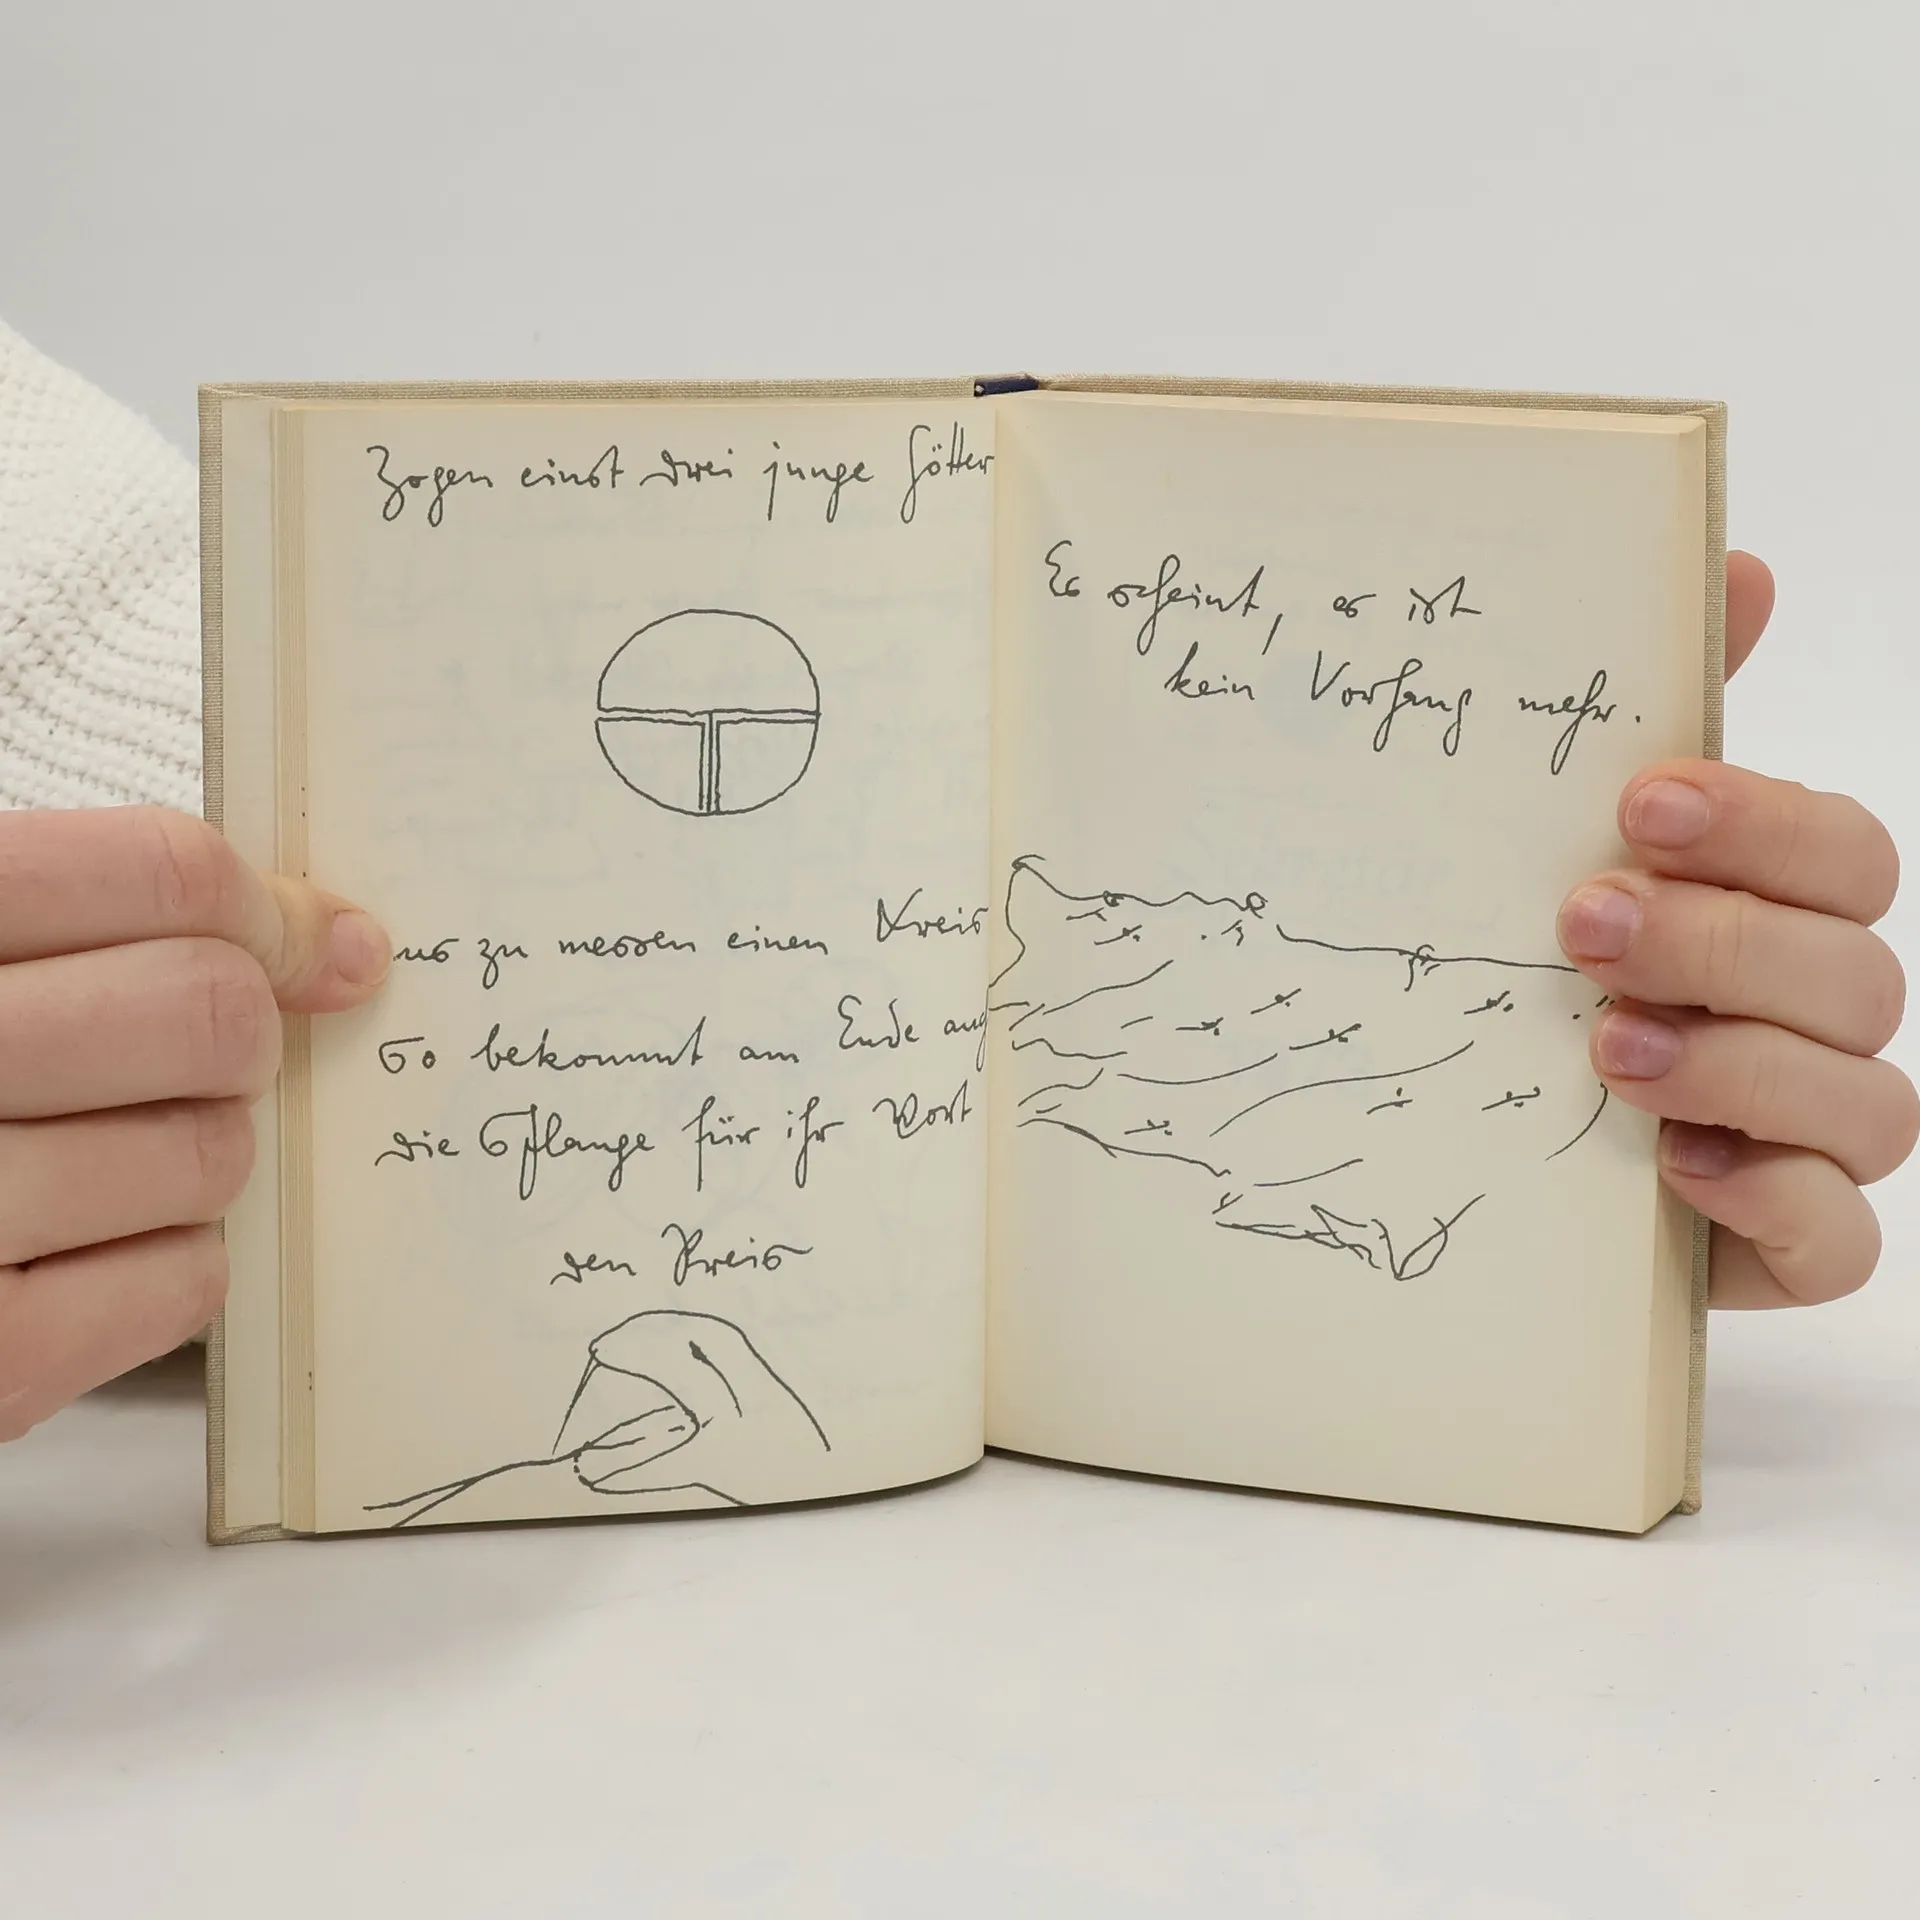 Zogen einst drei junge Götter
aus zu messen einen Kreis
So bekommt am Ende auch
die Schlange für ihr Wort
den Preis
Es scheint, es ist
kein Vorhang mehr.